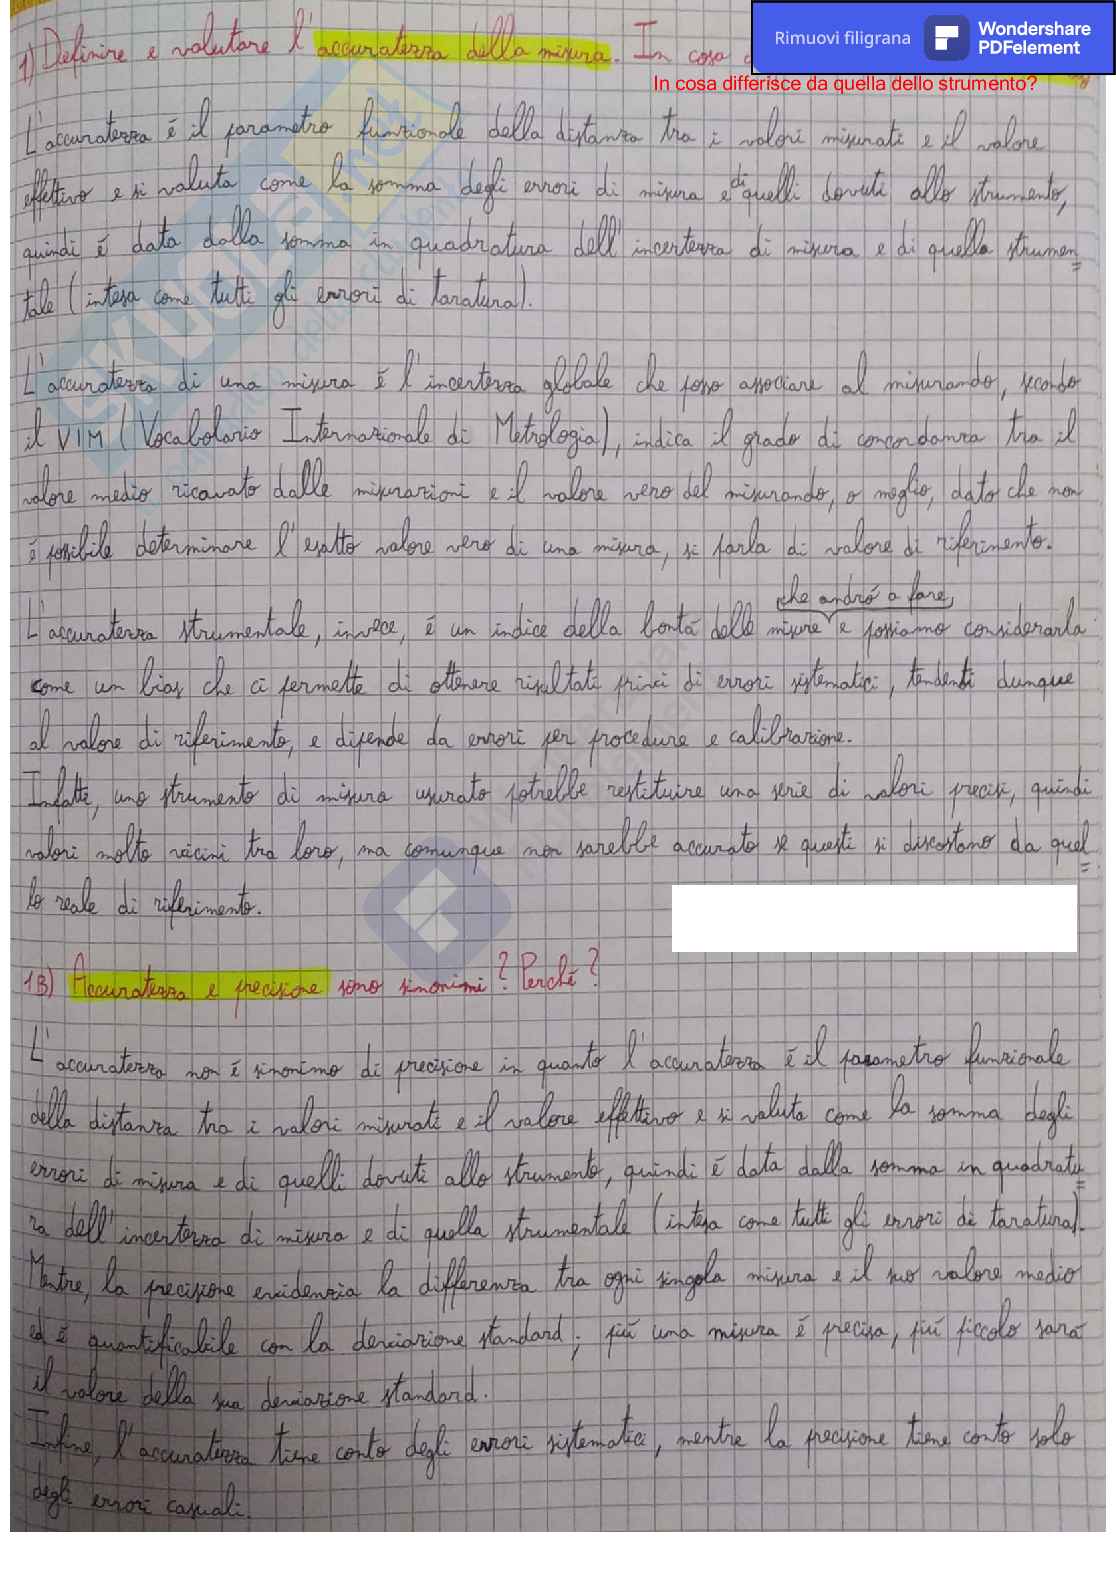 Rimuovi filigrana
Wondershare
PDFelement
1) Definire e valutare l'accuratezza della misura. In cosa
In cosa differisce da quella dello strumento?
L'accuratezza é il parametro funzionale della distanza tra i valori misurati e il valore
effettivo e si valuta come la somma degli errori di misura e di quelli dovuti allo strumento,
quindi é data dalla somma in quadratura dell'incertezza di misura e di quella strumen=
tale (intesa come tutti gli errori di taratura).
L'accuratezza di una misura é l'incertezza globale che posso associare al misurando, secondo
il VIM (Vocabolario Internazionale di Metrologia), indica il grado di concordanza tra il
valore medio ricavato dalle misurazioni e il valore vero del misurando, o meglio, dato che non
é possibile determinare l'esatto valore vero di una misura, si parla di valore di riferimento.
che andró a fare,
L'accuratezza strumentale, invece, é un indice della bontá delle misure e possiamo considerarla
come un bias che ci permette di ottenere risultati privi di errori sistematici, tendenti dunque
al valore di riferimento, e dipende da errori per procedure e calibrazione.
Infatti, uno strumento di misura usurato potrebbe restituire una serie di valori precisi, quindi
valori molto vicini tra loro, ma comunque non sarebbe accurato se questi si discostano da quel=
lo reale di riferimento.
1B) Accuratezza e precisione sono sinonimi? Perché?
L'accuratezza non é sinonimo di precisione in quanto l'accuratezza é il parametro funzionale
della distanza tra i valori misurati e il valore effettivo e si valuta come la somma degli
errori di misura e di quelli dovuti allo strumento, quindi é data dalla somma in quadratu=
ra dell'incertezza di misura e di quella strumentale (intesa come tutti gli errori di taratura).
Mentre, la precisione evidenzia la differenza tra ogni singola misura e il suo valore medio
ed é quantificabile con la deviazione standard; piú una misura é precisa, piú piccolo sará
il valore della sua deviazione standard.
Infine, l'accuratezza tiene conto degli errori sistematici, mentre la precisione tiene conto solo
degli errori casuali.